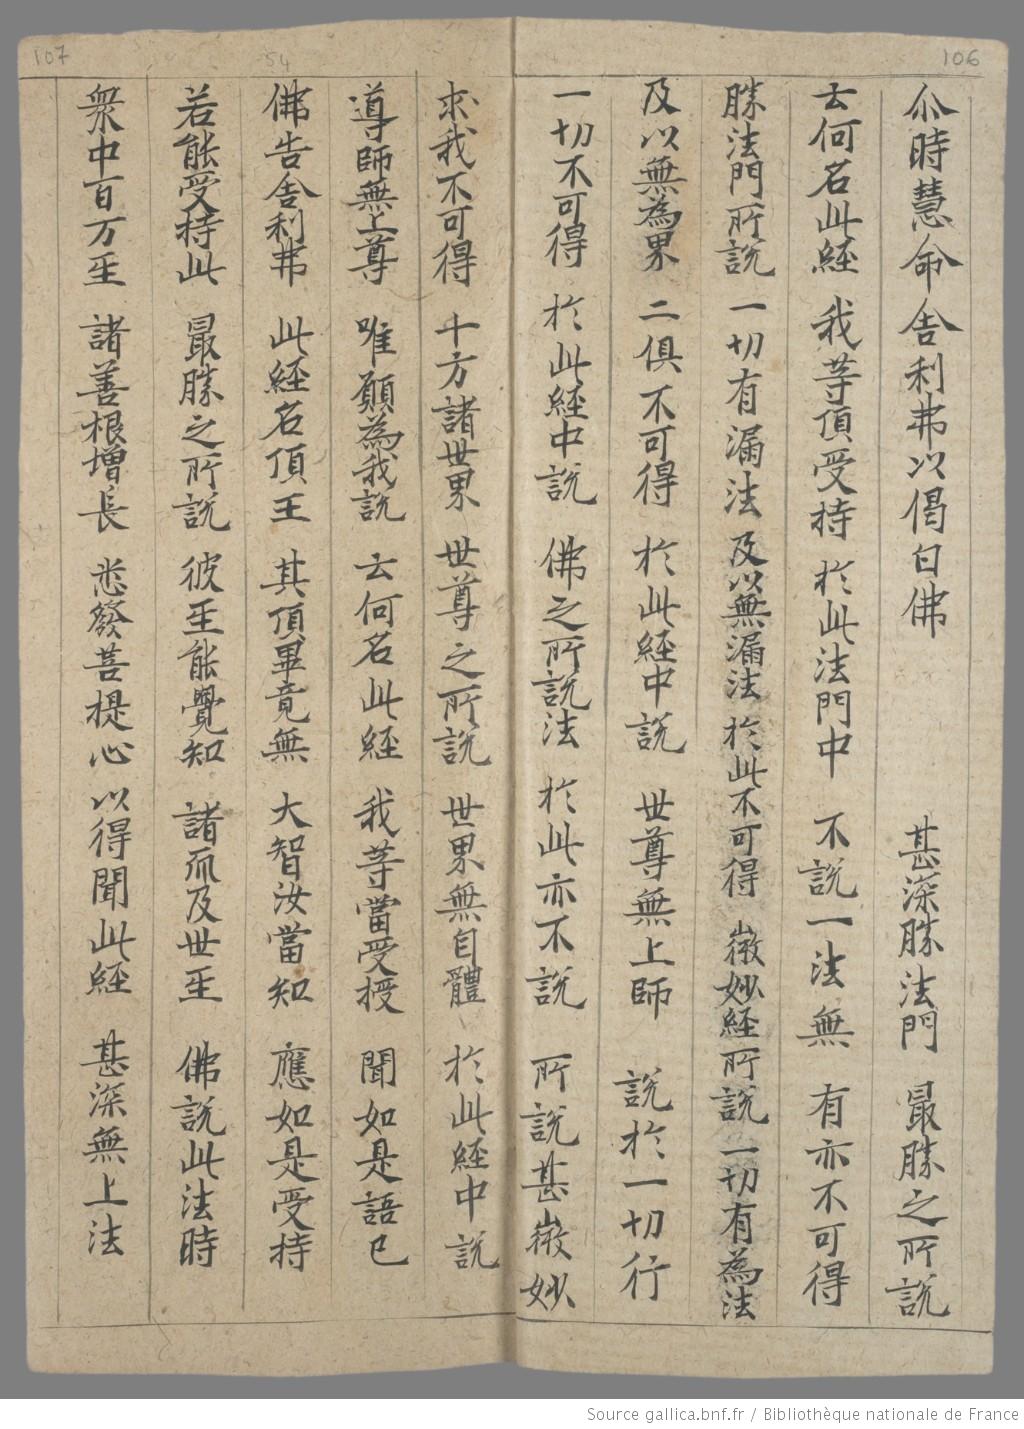 106
尒時慧命舍利弗以偈白佛 甚深勝法門 最勝之所說
云何名此經 我等頂受持 於此法門中 不說一法無 有亦不可得
勝法門所說 一切有漏法 及以無漏法 於此不可得 微妙經所說 一切有為法
及以無為界 二俱不可得 於此經中說 世尊無上師 說於一切行
一切不可得 於此經中說 佛之所說法 於此亦不說 所說甚微妙
107
54
求我不可得 十方諸世界 世尊之所說 世界無自體 於此經中說
導師無上尊 唯願為我說 云何名此經 我等當受授 聞如是語已
佛告舍利弗 此經名頂王 其頂畢竟無 大智汝當知 應如是受持
若能受持此 最勝之所說 彼𤯔能覺知 諸爪及世𤯔 佛說此法時
衆中百万𤯔 諸善根增長 悉發菩提心 以得聞此経 甚深無上法
Source gallica.bnf.fr / Bibliothèque nationale de France